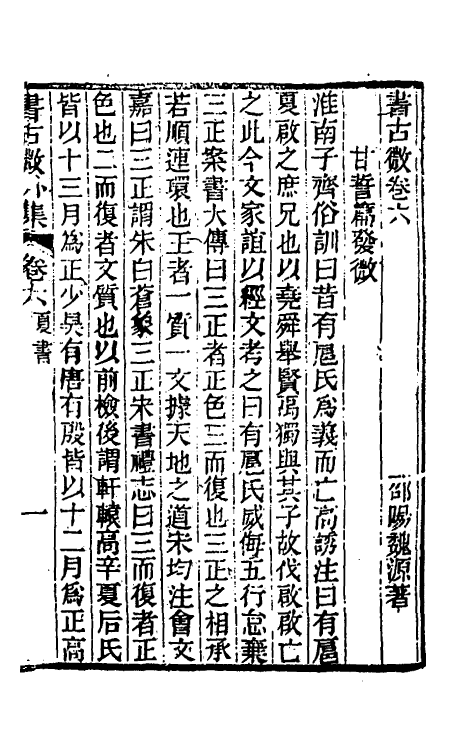 書古微卷六
邵陽魏源著
甘誓篇發微
淮南子齊俗訓曰昔有扈氏爲義而亡高誘注曰有扈
夏啟之庶兄也以堯舜舉賢禹獨與其子故伐啟啟亡
之此今文家誼以經文考之曰有扈氏威侮五行怠棄
三正案書大傳曰三正者正色三而復也三正之相承
若順連環也王者一質一文據天地之道宋均注會文
嘉曰三正謂朱白蒼象三正宋書禮志曰三而復者正
色也二而復者文質也以前檢後謂軒轅高辛夏后氏
皆以十三月爲正少昊有唐有殷皆以十二月爲正高
書古微 集 卷六 夏書 一